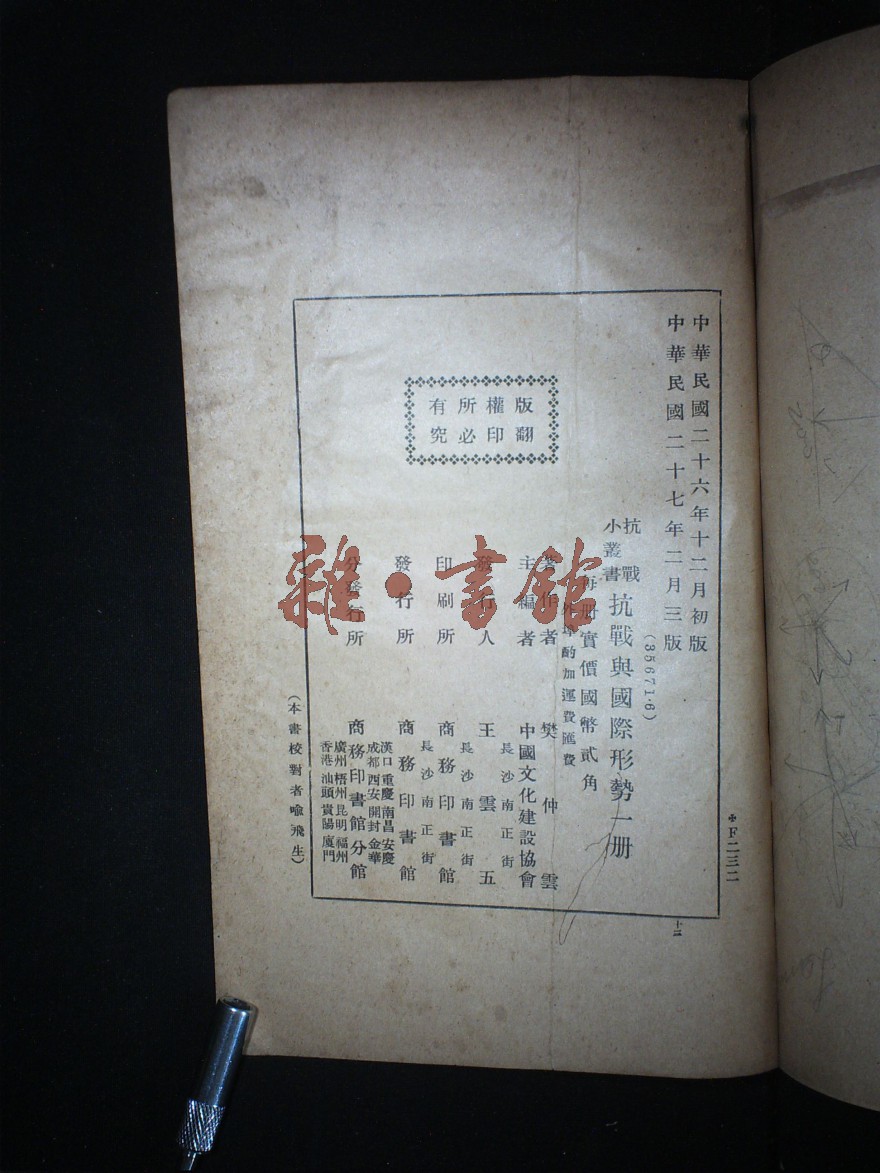 中華民國二十六年十二月初版
中華民國二十七年二月三版
✤F二三二
十三
抗戰小叢書
抗戰與國際形勢一册
(35671·6)
每册實價國幣貳角
外埠酌加運費匯費
版權所有
翻印必究
著作者 樊仲雲
主編者 中國文化建設協會
發行人 王雲五
長沙南正街
印刷所 商務印書館
長沙南正街
發行所 商務印書館
分發行所 商務印書館分館
漢口 重慶 南昌 安慶
成都 西安 開封 金華
廣州 梧州 昆明 福州
香港 汕頭 貴陽 廈門
(本書校對者喻飛生)
雜·書館